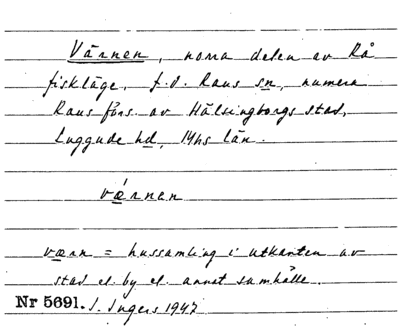 Värnen, norra delen av Rå
fiskläge, f.d. Raus sn, numera
Raus förs. av Hälsingborgs stad,
Luggude hd, Mhs län.
vǽrnen
værn = hussamling i utkanten av
stad el. by el. annat samhälle.
Nr 5691. I. Ingers 1947